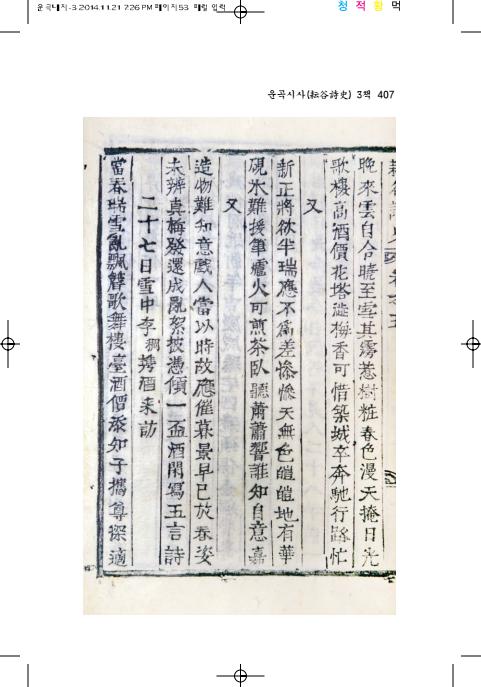 운곡대지-3 2014.11.21 7:26 PM 페이지53 매일 입력
청 적 황 먹
운곡시사(耘谷詩史) 3책 407
耘谷詩史 卷之五
晩來雲自合曉至雪其雱惹樹粧春色漫天掩日光
歌樓高酒價花塔澁梅香可惜築城卒奔馳行路忙
又
新正將欲半瑞應不爲差慘慘天無色皚皚地有華
硯氷難援筆爐火可煎茶臥聽蕭蕭響誰知自意嘉
又
造物難知意戱人當以時故應催暮景早已放春姿
未辨眞梅發還成亂絮披憑傾一盃酒閑寫五言詩
二十七日雪中李携酒來訪
當春時雪亂飄聲歌舞樓臺酒價添知子携尊深適